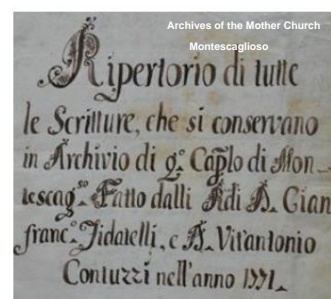 Archives of the Mother Church
Montescaglioso
Ripertorio di tutte
le Scritture, che si conservano
in Archivio di q.º Cap̃lo di Mon-
tescag.so Fatto dalli di D. Gian
franc.º e D. Vit'antonio
Contuzzi nell'anno 1771.